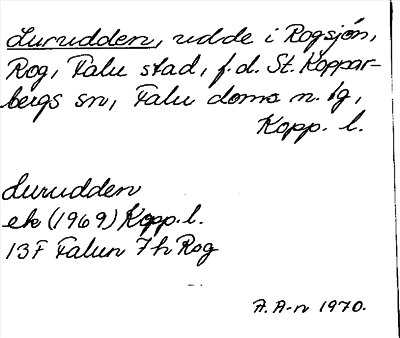 Lurudden, udde i Rogsjön,
Rog, Falu stad, f.d. St. Koppar-
bergs sn, Falu doms n. lg,
Kopp. l.
Lurudden
ek (1969) Kopp. l.
13F Falun 7h Rog
A. A-n 1970.